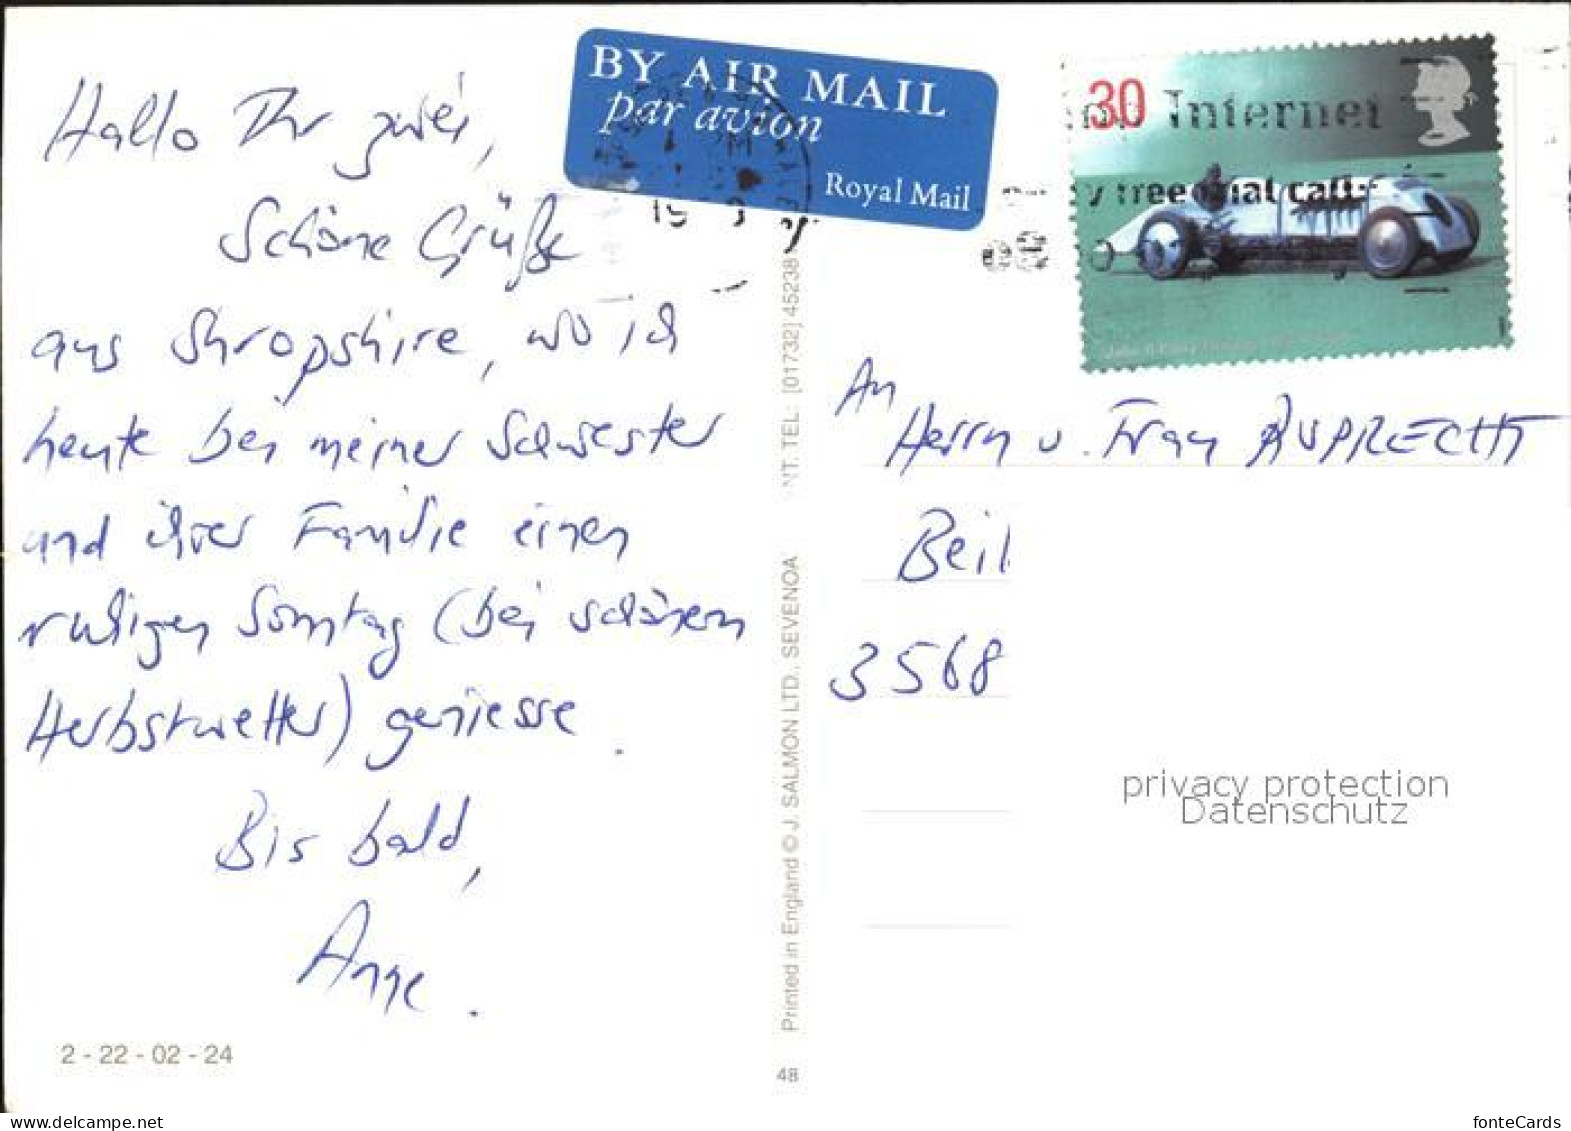 Hallo Ihr zwei,
Schöne Grüße
aus Shropshire, wo ich
heute bei meiner Schwester
und ihrer Familie einen
ruhigen Sonntag (bei schönem
Herbstwetter) geniesse.
Bis bald,
Anne.
2 - 22 - 02 - 24
BY AIR MAIL
par avion
Royal Mail
NT. TEL: [01732] 45238
Printed in England © J. SALMON LTD., SEVENOA
48
30
Internet
free trial call:
An
Herrn u. Frau RUPRECHT
Beil
3568
privacy protection
Datenschutz
www.delcampe.net
fonteCards